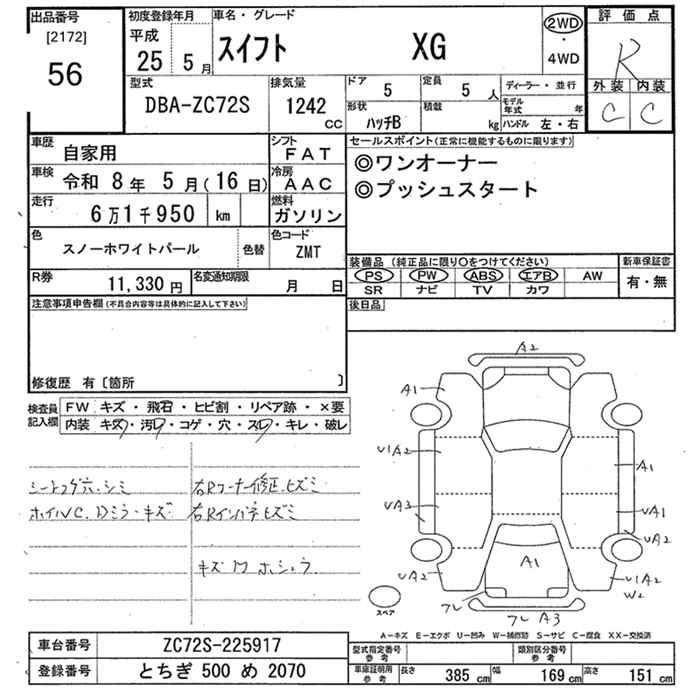 出品番号 初度登録年月 車名・グレード 2WD 評価点
[2172] 平成 スイフト XG ・ R
56 25 5月 4WD 外装 内装
型式 排気量 ドア 5 定員 5人 ディーラー・並行 C C
DBA-ZC72S 1242cc 形状 ハッチB 積載 kg モデル年式 年
ハンドル 左・右
車歴 自家用 シフト FAT セールスポイント(正常に機能するものに限ります)
車検 令和 8年 5月(16日) 冷房 AAC ◎ワンオーナー
走行 6万1千950 km 燃料 ガソリン ◎プッシュスタート
色 スノーホワイトパール 色替 色コード ZMT
装備品(純正品に限り○をつけてください) 新車保証書
R券 11,330円 名変通知期限 月 日 PS PW ABS エアB AW 有・無
SR ナビ TV カワ
注意事項申告欄(不具合内容等は具体的に記入して下さい) 後日品
修復歴 有〔箇所 〕
検査員記入欄 FW キズ・飛石・ヒビ割・リペア跡・×要
内装 キズ・汚レ・コゲ・穴・スレ・キレ・破レ
シートコゲ穴、シミ 右Rコーナー修正、ヒズミ
ホイルVC、Dミラーキズ 右Rインパネヒズミ
キズ凹ホシュウ
A2
A1
UA2 A1
UA3 UA1
UA2
UA2 A1 UA2
W2
フレ
フレ A3
スペア
A-キズ E-エクボ U-凹み W-補修跡 S-サビ C-腐食 XX-交換済
車台番号 ZC72S-225917 型式指定番号 参考 類別区分番号 参考
登録番号 とちぎ 500 め 2070 車庫証明用 参考 長さ 385cm 幅 169cm 高さ 151cm